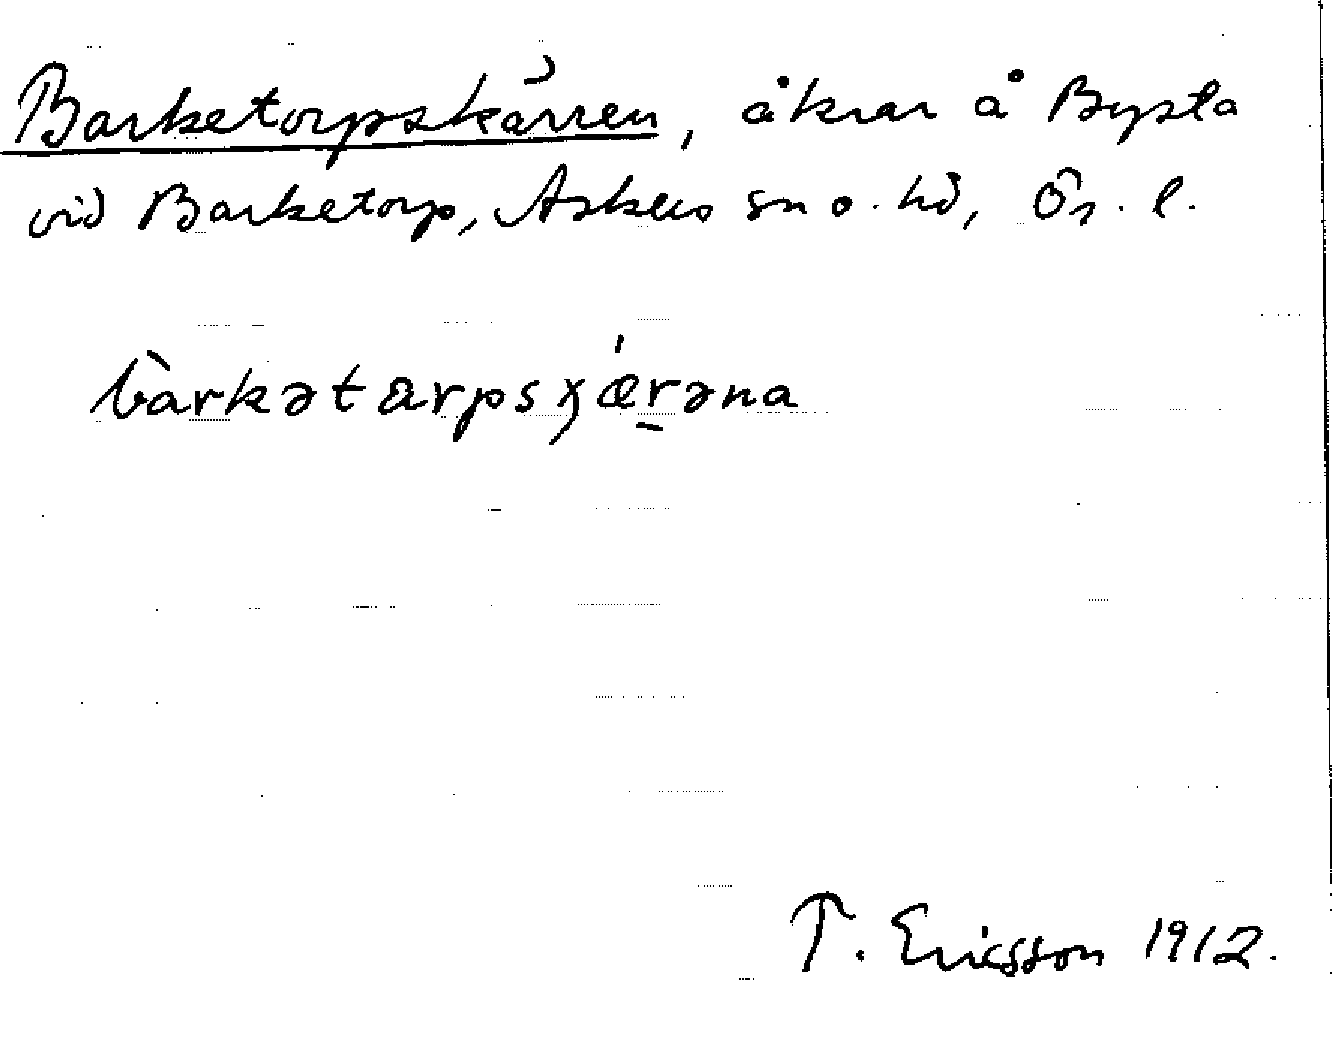 Barketorpskärren, åkrar å Bysta
vid Barketorp, Askers sn o. hd, Ör. l.
bàrkətarpsχǽrəna
T. Ericsson 1912.